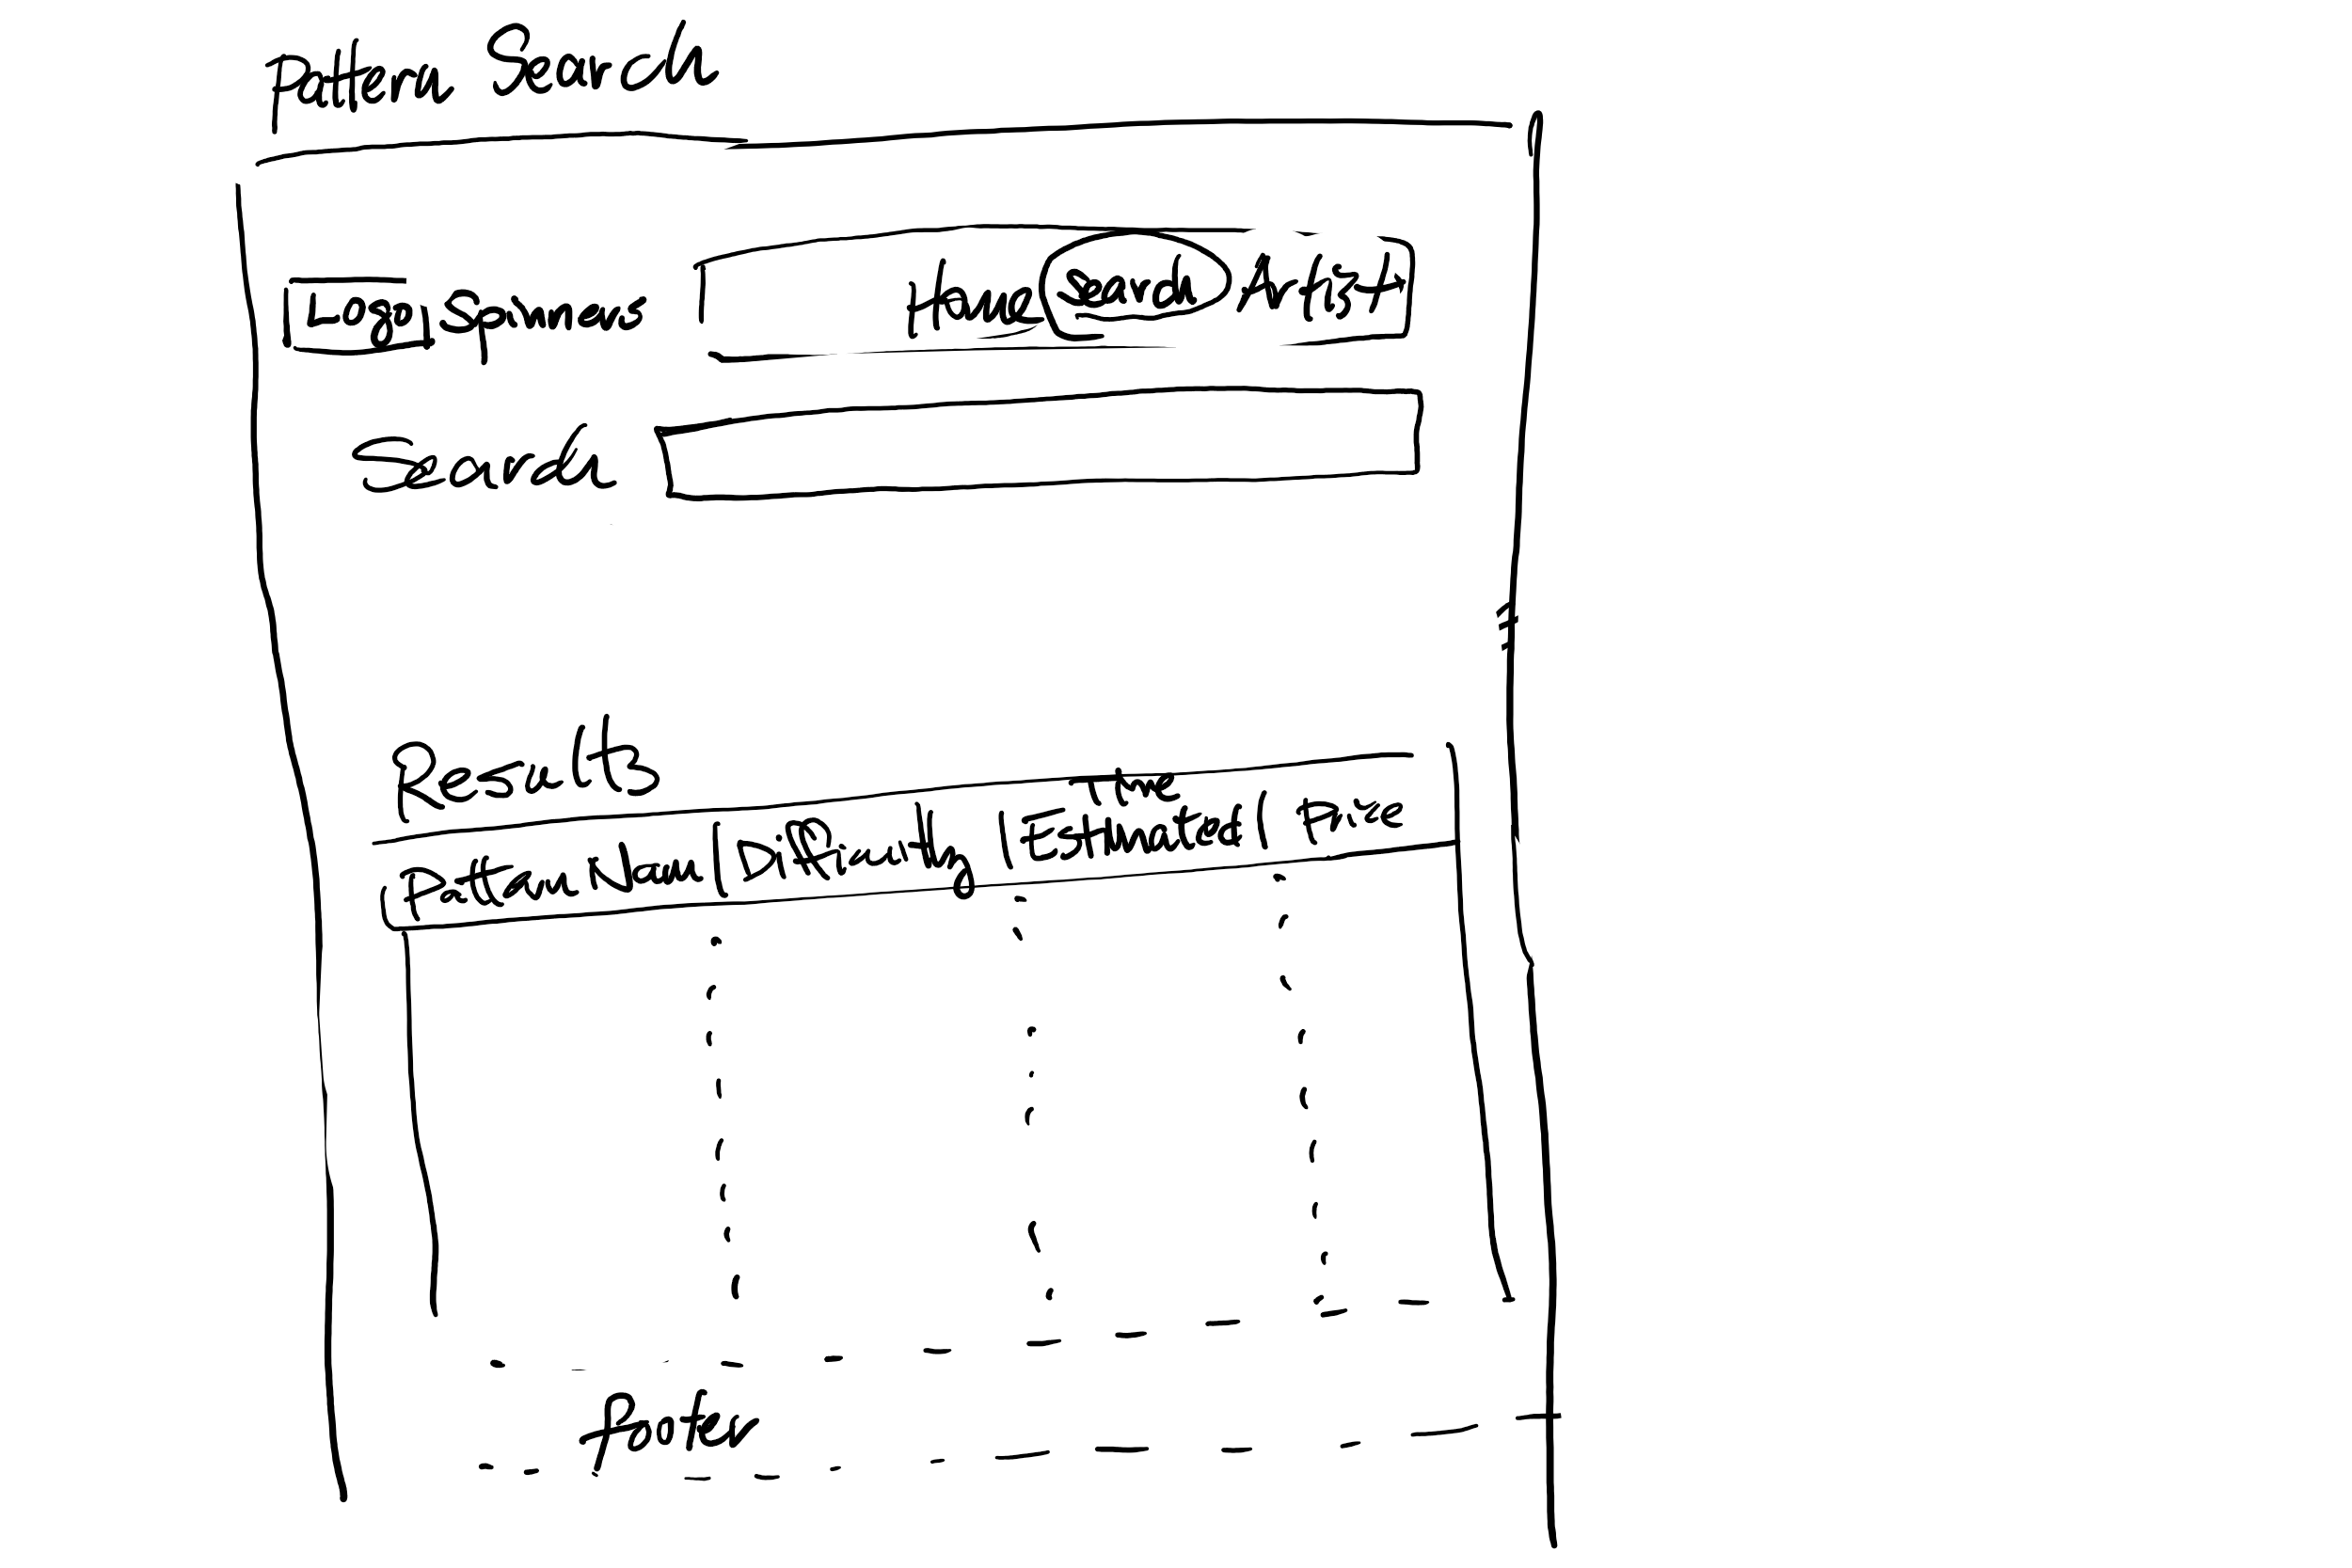 Pattern Search
Logo Spinners Home Search Artist
Search
Results
Pattern Name | Difficulty | Time Estimated | Price
footer